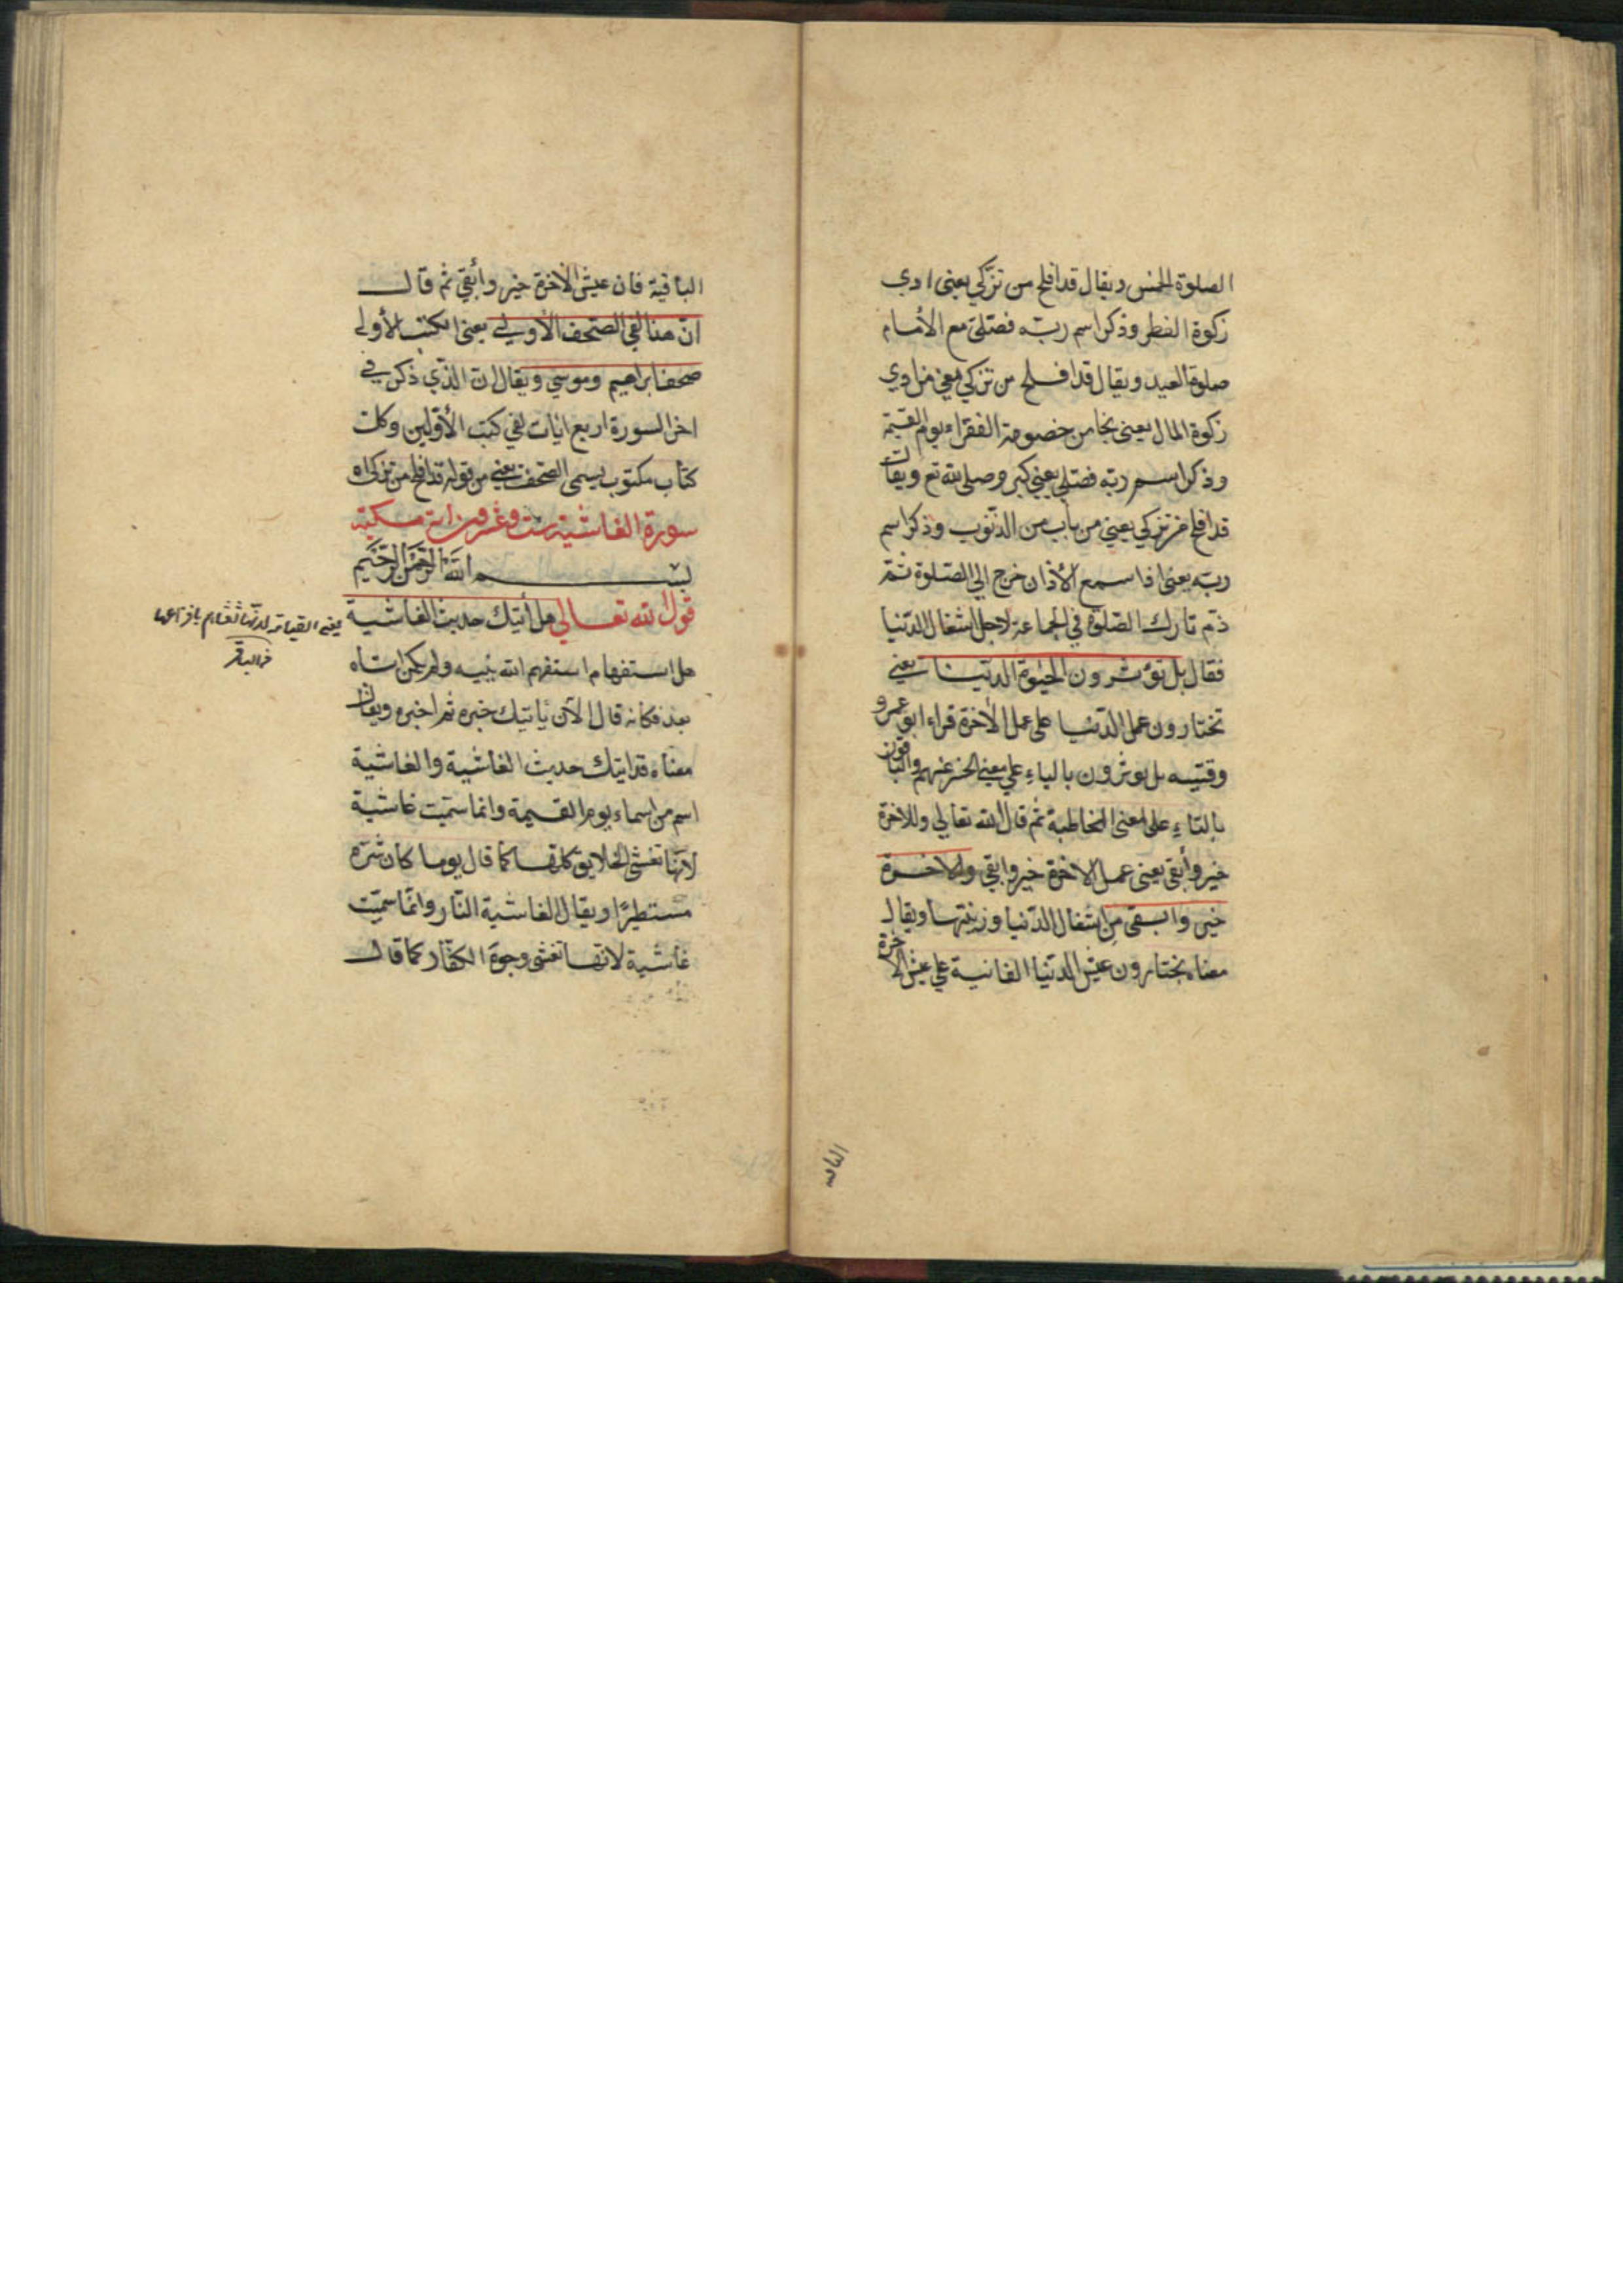 الصلوة الخمس ويقال قد افلح من تزكي يعني ادي
زكوة الفطر وذكر اسم ربّه فصلّي مع الأمام
صلوة العيد ويقال قد افلح من تزكي يعني من ادي
زكوة المال يعني نجا من خصومة الفقراء يوم القيمة
وذكر اسم ربّه فصلّي يعني كبر وصلي لله تع ويقال
قد افلح من تزكي يعني من تاب من الذّنوب وذكر اسم
ربّه يعني اذا سمع الأذان خرج الي الصّلوة ثمّ
ذمّ تارك الصّلوة في الجماعة لاجل اشتغال الدّنيا
فقال بل تؤثرون الحيٰوة الدّنيا يعني
تختارون عمل الدّنيا على عمل الأخرة قراء ابو عمرو
وقتيبه بل يوثرون بالياءِ علي معني الخبر عنهم والباقون
بالتاءِ على معنى المخاطبة ثم قال الله تعالي وللاخرة
خير وأبقى يعني عمل الاخرة خير وابقي وللاخرة
خير وابقى من اشتغال الدّنيا وزينتها ويقال
معناه يختارون عيش الدّنيا الفانية علي عيش الاخرة
الباقية
الباقية فان عيش الأخرة خير وأبقي ثم قال
انّ هذا لفي الصّحف الأولي يعني الكتب الأولي
صحف ابراهيم وموسي ويقال ان الذّي ذكر في
اخر السورة اربع ايات لفي كتب الأوّلين وكل
كتاب مكتوب يسمى الصّحف يعني من قوله قد افلح من تزكى اه
سورة الغاشية ست وعشرون اية مكية
بسم الله الرّحمن الرّحيم
قول الله تعالي هل أتيك حديث الغاشية
هل استفهام استفهم الله نبيه ولم يكن اتاه
بعد فكانه قال الآن يأتيك خبره ثم اخبره ويقال
معناه قد اتيك حديث الغاشية والغاشية
اسم من اسماء يوم القيمة وانما سمّيت غاشية
لانّها تغشي الخلايق كلها كما قال يوما كان شرّه
مستطيرًا ويقال الغاشية النّار وانّما سميّت
غاشية لانها تغشي وجوه الكفّار كما قال
يعني القيامة لانّها تغشاهم